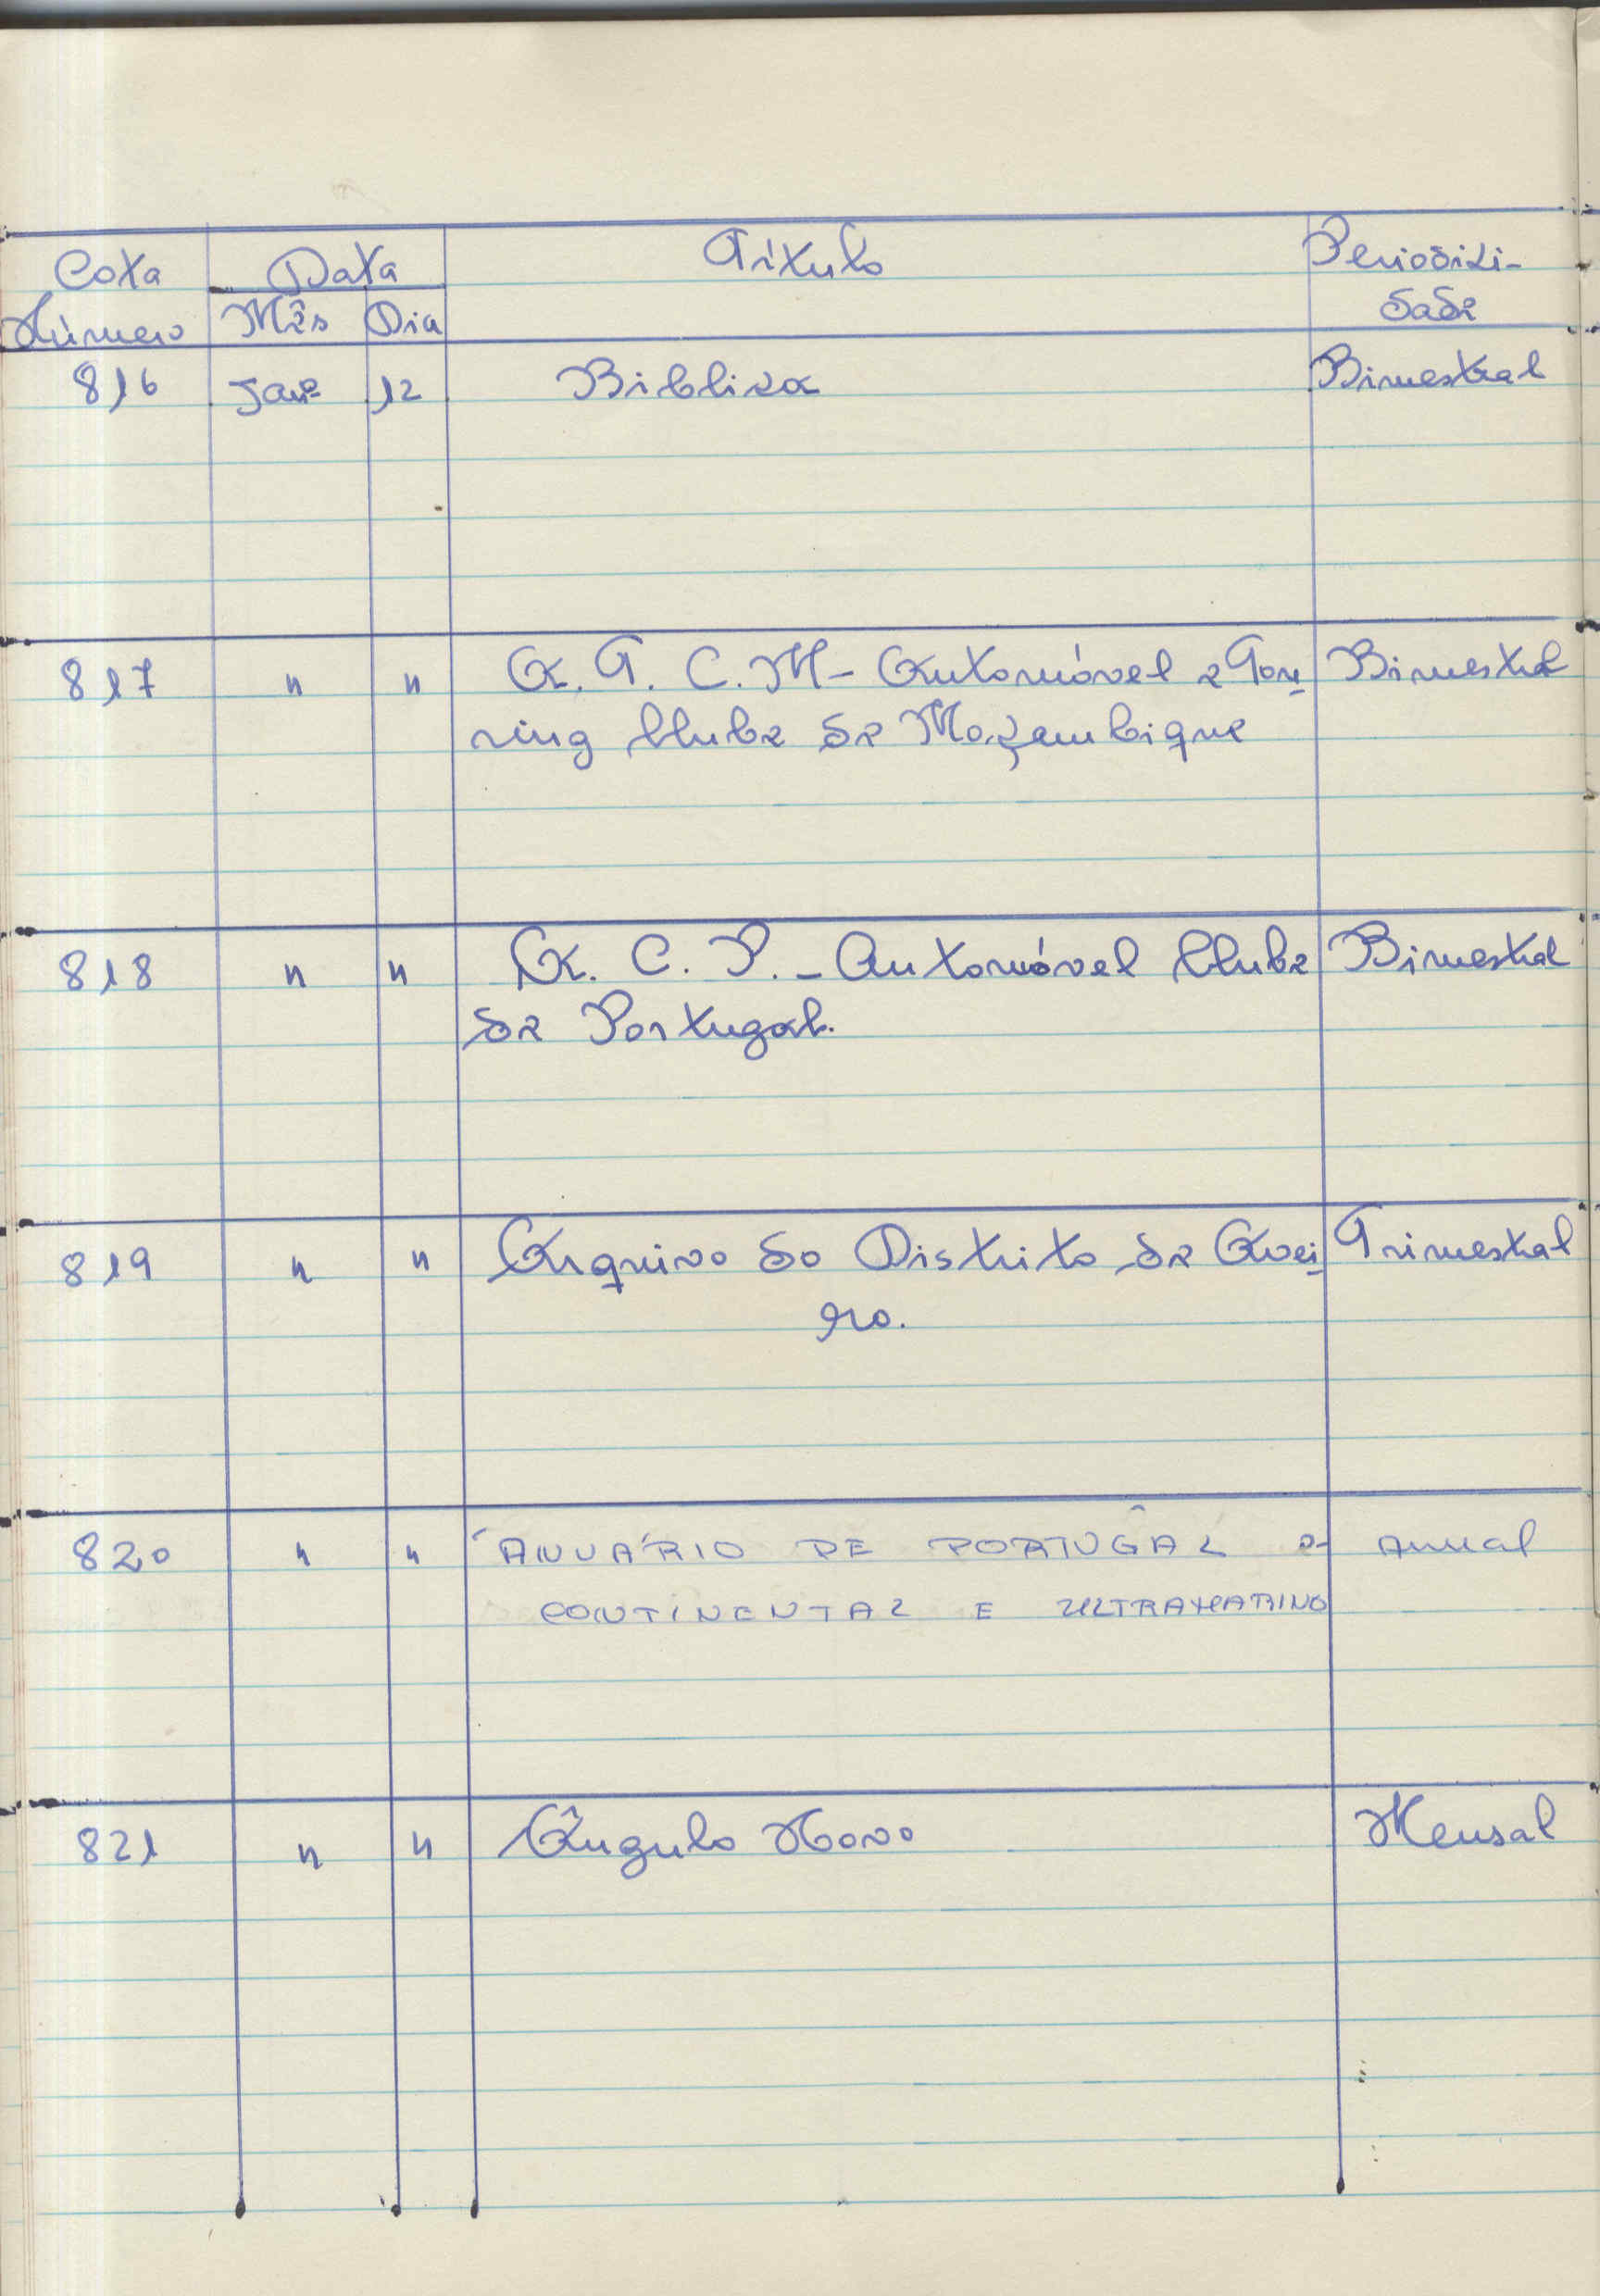 Cota Data Título Periodici-
Número Mês Dia dade
816 Janº 12 Biblica Bimestral
817 " " A. T. C. M - Automóvel e Tou- Bimestral
ring Clube de Moçambique
818 " " A. C. P. - Automóvel Clube Bimestral
de Portugal.
819 " " Arquivo do Distrito de Avei- Trimestral
ro.
820 " " ANUÁRIO DE PORTUGAL Anual
CONTINENTAL E ULTRAMARINO
821 " " Ângulo Novo Mensal